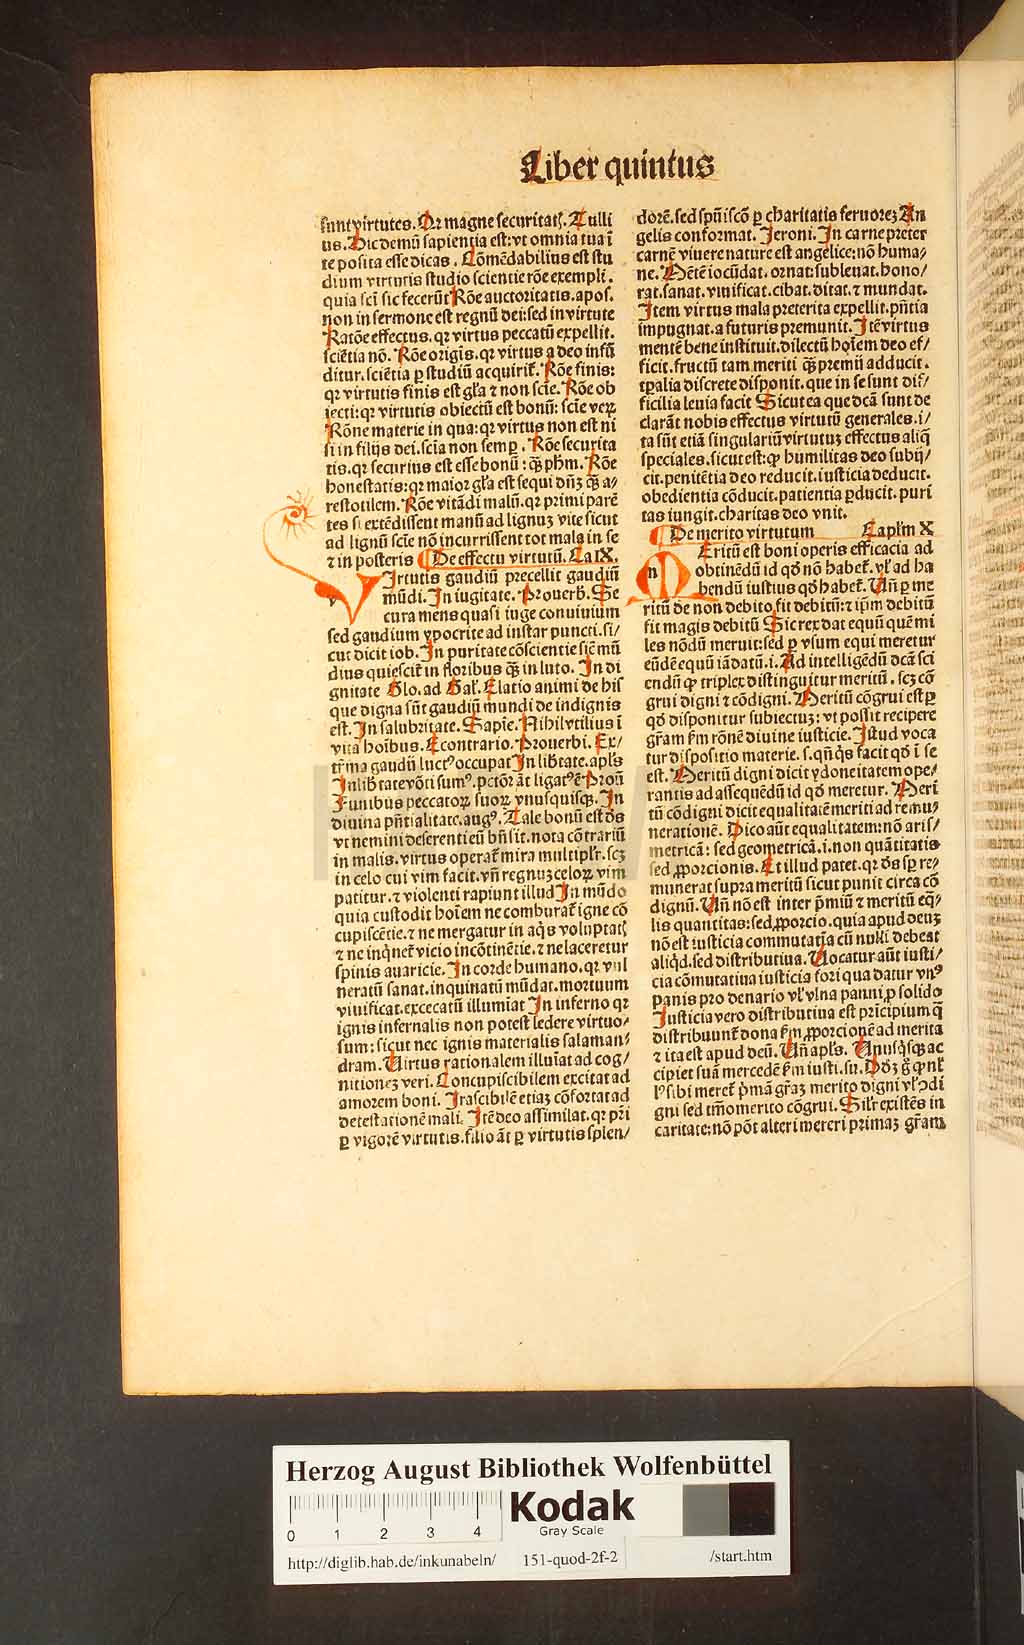 Liber quintus
sunt virtutes. Qꝛ magne securitatꝭ. Tulli
us. Hic demū sapientia est: vt omnia tua ī
te posita esse dicas. Cōmēdabilius est stu
dium virtutis studio scientie rōe exempli.
quia scī sic fecerūt Rōe auctoritatis. apos.
non in sermone est regnū dei: sed in virtute
Ratōe effectus. qꝛ virtus peccatū expellit.
sciētia nō. Rōe origīs. qꝛ virtus a deo infū
ditur. sciētia ꝑ studiū acquirit᷑. Rōe finis:
qꝛ virtutis finis est gl̄a ⁊ non scie. Rōe ob
iecti: qꝛ virtutis obiectū est bonū: scie veꝝ
Rōne materie in qua: qꝛ virtus non est ni
si in filijs dei. scīa non semꝑ. Rōe securita
tis. qꝛ securius est esse bonū: qꝫ ph̄m. Rōe
honestatis: qꝛ maior gl̄a est sequi dn̄ꝫ qꝫ a/
restotilem. Rōe vitādi malū. qꝛ primi parē
tes si extēdissent manū ad lignuꝫ vite sicut
ad lignū scīe nō incurrissent tot mala in se
⁊ in posteris De effectu virtutū. Ca IX.
v Irtutis gaudiū precellit gaudiū
mūdi. In iugitate. Prouerb̄. Se
cura mens quasi iuge conuiuium
sed gaudium ypocrite ad instar puncti. si/
cut dicit iob. In puritate cōscientie siē mū
dius quiescit in floribus qꝫ in luto. In di
gnitate Glo. ad Gal̄. Elatio animi de his
que digna sūt gaudiū mundi de indignis
est. In salubꝛitate. Sapie. Nihil vtilius ī
vita hoībus. Econtrario. Prouerbi. Ex/
tr̄ma gaudii luctꝰ occupat In lib̄tate. apl̄s
In lib̄tate vōti sumꝰ. pctōꝛ āt ligatꝰ ē Proū
Funibus peccatoꝝ suoꝝ vnusquisqꝫ. In
diuina pn̄tialitate. augꝰ. Tale bonū est dꝰs
vt nemini deserenti eū bn̄ sit. nota cōtrariū
in malis. virtus operat᷑ mira multipl̄r. scꝫ
in celo cui vim facit. vn̄ regnuꝫ celoꝝ vim
patitur. ⁊ violenti rapiunt illud In mūdo
quia custodit hoīem ne comburat᷑ igne cō
cupiscētie. ⁊ ne mergatur in aq̄s voluptatꝭ
⁊ ne inq̄net᷑ vicio incōtinētie. ⁊ ne laceretur
spinis auaricie. In corde humano. qꝛ vul
neratū sanat. inquinatū mūdat. mortuum
viuificat. excecatū illumiat In inferno qꝛ
ignis infernalis non potest ledere virtuo/
sum: sicut nec ignis materialis salaman/
dram. Virtus rationalem illuīat ad cog/
nitioneꝫ veri. Concupiscibilem excitat ad
amorem boni. Irascibilē etiaꝫ cōfortat ad
detestationē mali. Itē deo assimilat. qꝛ pr̄i
ꝑ vigorē virtutis. filio āt ꝑ virtutis splen/
dorē. sed spūi scō ꝑ charitatis feruoreꝫ An
gelis conformat. Jeroni. In carne preter
carnē viuere nature est angelice: nō huma/
ne. Mētē iocūdat. ornat: subleuat. hono/
rat. sanat. viuificat. cibat. ditat. ⁊ mundat.
Item virtus mala preterita expellit. pn̄tia
impugnat. a futuris premunit. Itē virtus
mentē bene instituit. dilectū hoīem deo ef/
ficit. fructū tam meriti qꝫ premij adducit.
tꝑalia discrete disponit. que in se sunt dif/
ficilia leuia facit Sicut ea que dcā sunt de
clarāt nobis effectus virtutū generales. i/
ta sūt etiā singulariū virtutuꝫ effectus aliq̄
speciales. sicut est: ꝙ humilitas deo subij/
cit. penitētia deo reducit. iusticia deducit.
obedientia cōducit. patientia ꝑducit. puri
tas iungit. charitas deo vnit.
De merito virtutum Capl̄m X
m Eritū est boni operis efficacia ad
obtinēdū id qd̄ nō habet᷑. vl̄ ad ha
bendū iustius qd̄ habet᷑. Un̄ ꝑ me
ritū de non debito fit debitū: ⁊ ip̄m debitū
fit magis debitū Sic rex dat equū quē mi
les nōdū meruit: sed ꝑ vsum equi meretur
eūdē equū iā datū. i. Ad intelligēdū dcā sci
endū ꝙ triplex distinguitur meritū. scꝫ cō
grui digni ⁊ cōdigni. Meritū cōgrui est ꝑ
qd̄ disponitur subiectuꝫ: vt possit recipere
gr̄am ẜm rōnē diuine iusticie. Istud voca
tur dispositio materie. s. qn̄ qs facit qd̄ ī se
est. Meritū digni dicit ydoneitatem ope/
rantis ad assequēdū id qd̄ meretur. Meri
tū cōdigni dicit equalitatē meriti ad remu/
nerationē. Dico aūt equalitatem: nō aris/
metricā: sed geometricā. i. non quātitatis
sed ꝓporcionis. Et illud patet. qꝛ dꝰs sꝑ re/
munerat supra meritū sicut punit citra cō
dignū. Un̄ nō est inter p̄miū ⁊ meritū eq̄/
lis quantitas: sed ꝓporcio. quia apud deuꝫ
nō est iusticia commutatīa cū nulli debeat
aliqd. sed distributiua. Uocatur aūt iusti/
cia cōmutatiua iusticia fori qua datur vnꝰ
panis pro denario vl̄ vlna panni ꝓ solido
Iusticia vero distributiua est prīcipium q̄
distribuunt᷑ dona ẜm ꝓporcionē ad merita
⁊ ita est apud deū. Un̄ apl̄s. Unusqisqꝫ ac
cipiet suā mercedē ẜm iusti. su.
gni sed tm̄o merito cōgrui. Sil̄r existēs in
caritate: nō pōt alteri mereri primaꝫ gr̄am
Herzog August Bibliothek Wolfenbüttel
0 1 2 3 4
Kodak
Gray Scale
http://diglib.hab.de/inkunabeln/ 151-quod-2f-2 /start.htm